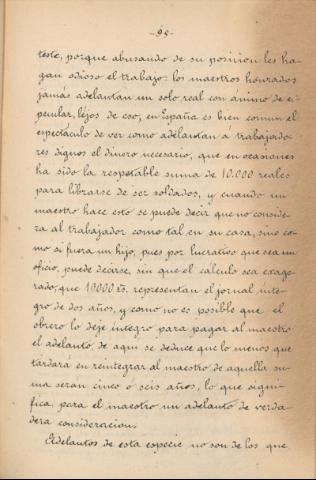 -95-
teste, porque abusando de su posicion les ha-
gan odioso el trabajo: los maestros honrados
jamás adelantan un solo real con ánimo de es-
pecular, lejos de eso, en España es bien comun el
espectáculo de ver como adelantan á trabajado-
res dignos el dinero necesario, que en ocasiones
ha sido la respetable suma de 10.000 reales
para librarse de ser soldados, y cuando un
maestro hace esto se puede decir que no conside-
ra al trabajador como tal en su casa, sino co-
mo si fuera un hijo, pues por lucrativo que sea un
oficio, puede decirse, sin que el cálculo sea exage-
rado, que 10000 rs. representan el jornal ínte-
gro de dos años, y como no es posible que el
obrero lo deje íntegro para pagar al maestro
el adelanto, de aquí se deduce que lo menos que
tardará en reintegrar al maestro de aquella su-
ma seran cinco ó seis años, lo que signi-
fica para el maestro un adelanto de verda-
dera consideracion.
Adelantos de esta especie no son de los que